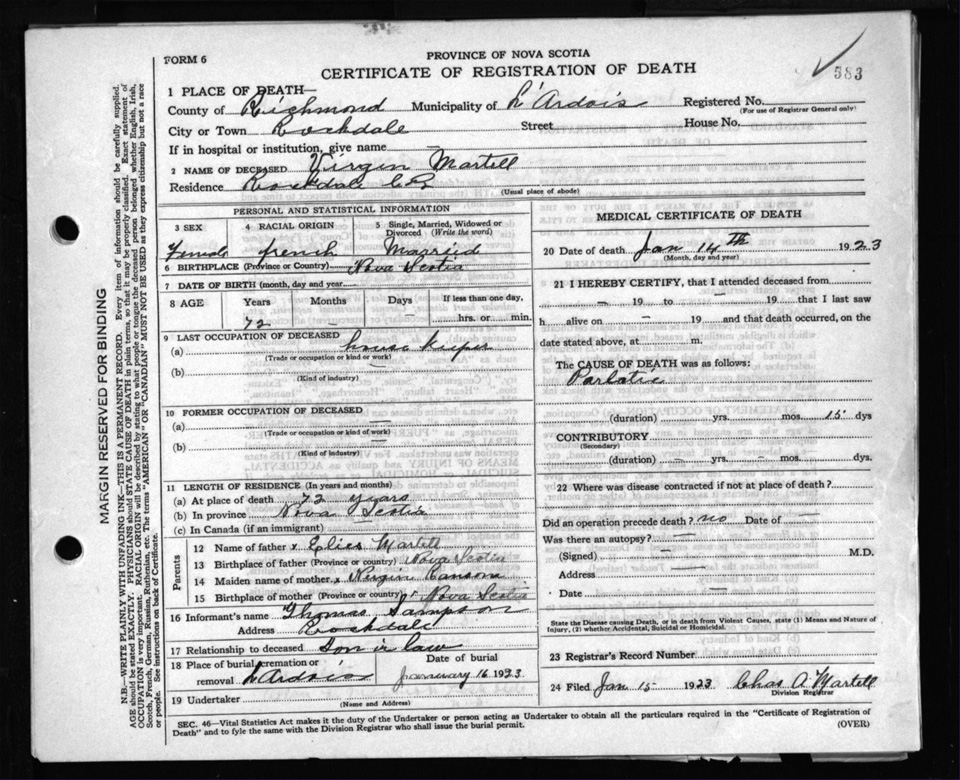 FORM 6
PROVINCE OF NOVA SCOTIA
CERTIFICATE OF REGISTRATION OF DEATH
583
1 PLACE OF DEATH—
County of Richmond Municipality of L'Ardois Registered No.
(For use of Registrar General only)
City or Town Rockdale Street House No.
If in hospital or institution, give name —
2 NAME OF DECEASED Virgin Martell
Residence Rockdale C B
(Usual place of abode)
PERSONAL AND STATISTICAL INFORMATION
3 SEX 4 RACIAL ORIGIN 5 Single, Married, Widowed or Divorced (Write the word)
Female french Married
6 BIRTHPLACE (Province or Country) Nova Scotia
7 DATE OF BIRTH (month, day and year)
8 AGE Years Months Days If less than one day,
72 — — hrs. or min.
9 LAST OCCUPATION OF DECEASED
(a) house keeper
(Trade or occupation or kind or work)
(b) —
(Kind of industry)
10 FORMER OCCUPATION OF DECEASED
(a)
(Trade or occupation or kind of work)
(b) —
(Kind of industry)
11 LENGTH OF RESIDENCE (In years and months)
(a) At place of death 72 years
(b) In province Nova Scotia
(c) In Canada (if an immigrant)
Parents
12 Name of father Elies Martell
13 Birthplace of father (Province or country) Nova Scotia
14 Maiden name of mother Virgin
15 Birthplace of mother (Province or country) Nova Scotia
16 Informant's name Thomas Sampson
Address Rockdale
17 Relationship to deceased Son in law
18 Place of burial, cremation or removal L'Ardois Date of burial January 16 1923
19 Undertaker
(Name and Address)
MEDICAL CERTIFICATE OF DEATH
20 Date of death Jan 14th 1923
(Month, day and year)
21 I HEREBY CERTIFY, that I attended deceased from
— 19 to — 19 that I last saw
h alive on — 19 and that death occurred, on the
date stated above, at m.
The CAUSE OF DEATH was as follows:
(duration) — yrs. — mos. 15 dys
CONTRIBUTORY
(Secondary)
(duration) — yrs. mos. dys
22 Where was disease contracted if not at place of death?
—
Did an operation precede death? no Date of —
Was there an autopsy? —
(Signed) — M.D.
Address —
Date —
State the Disease causing Death, or in death from Violent Causes, state (1) Means and Nature of
Injury, (2) whether Accidental, Suicidal or Homicidal.
23 Registrar's Record Number
24 Filed Jan 15 1923 Chas A Martell
Division Registrar
SEC. 46—Vital Statistics Act makes it the duty of the Undertaker or person acting as Undertaker to obtain all the particulars required in the "Certificate of Registration of
Death" and to fyle the same with the Division Registrar who shall issue the burial permit. (OVER)
MARGIN RESERVED FOR BINDING
N.B.—WRITE PLAINLY WITH UNFADING INK—THIS IS A PERMANENT RECORD. Every item of information should be carefully supplied.
AGE should be stated EXACTLY. PHYSICIANS should STATE CAUSE OF DEATH in plain terms, so that it may be properly classified. Exact statement of
OCCUPATION is very important. RACIAL ORIGIN will be described by stating to what people or tongue the deceased person belonged whether English, Irish,
Scotch, French, German, Russian, Ruthenian, etc. The terms "AMERICAN" OR "CANADIAN" MUST NOT BE USED as they express citizenship but not a race
or people. See instructions on back of Certificate.